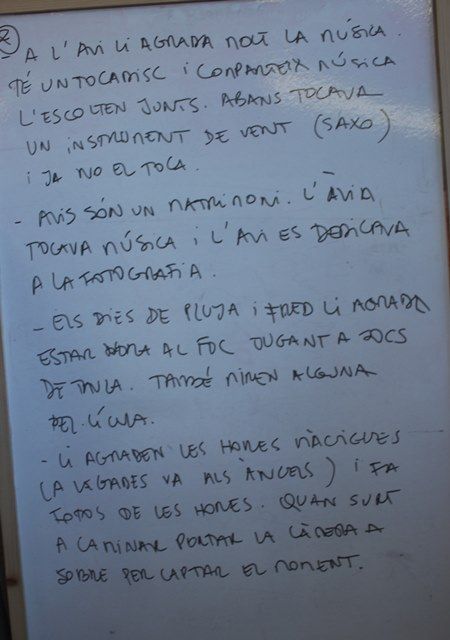 2
- A L'AVI LI AGRADA MOLT LA MÚSICA.
TÉ UN TOCADISC I COMPARTEIX MÚSICA
L'ESCOLTEN JUNTS. ABANS TOCAVA
UN INSTRUMENT DE VENT (SAXO)
I JA NO EL TOCA.
- AVIS SÓN UN MATRIMONI. L'ÀVIA
TOCAVA MÚSICA I L'AVI ES DEDICAVA
A LA FOTOGRAFIA.
- ELS DIES DE PLUJA I FRED LI AGRADA
ESTAR VORA AL FOC JUGANT A JOCS
DE TAULA. TAMBÉ MIREN ALGUNA
PEL·LÍCULA.
- LI AGRADEN LES HORES MÀGIQUES
(A VEGADES VA ALS ÀNGELS) I FA
FOTOS DE LES HORES. QUAN SURT
A CAMINAR PORTAR LA CÀMERA A
SOBRE PER CAPTAR EL MOMENT.